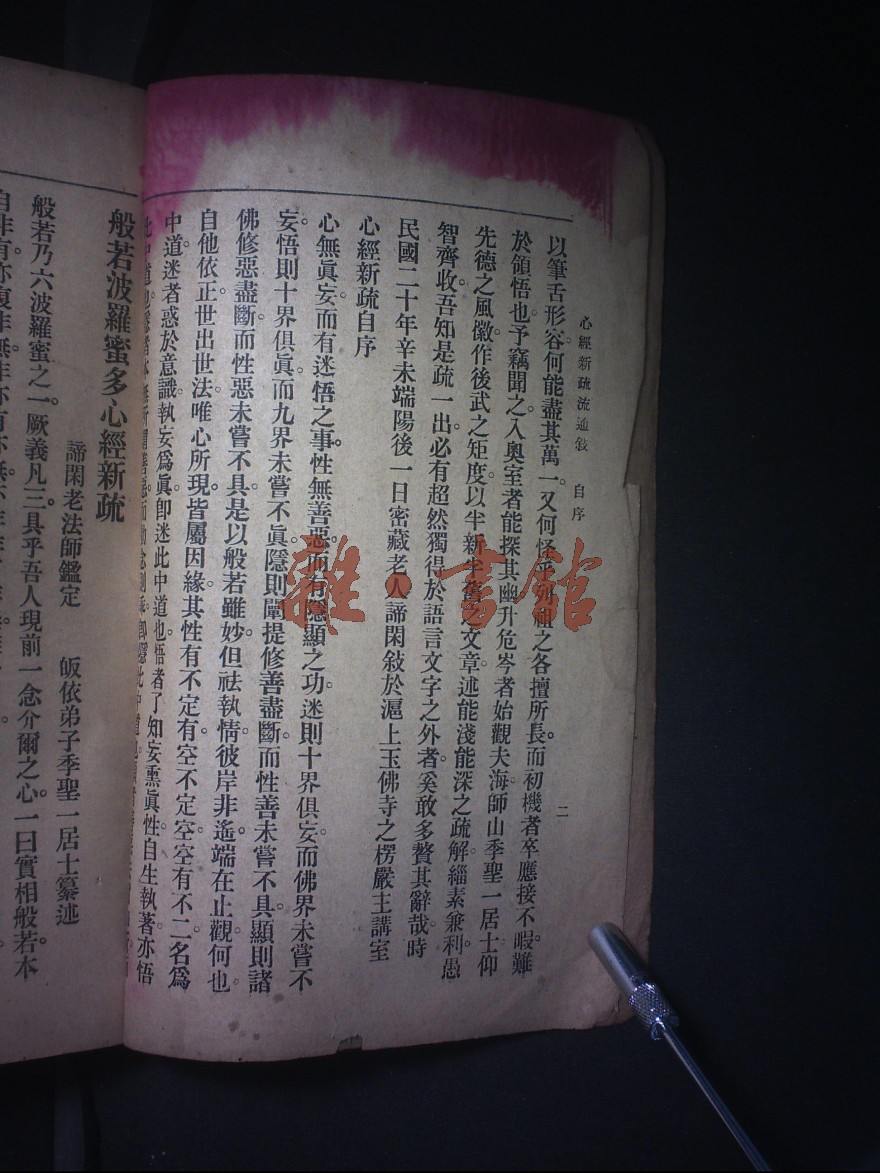 心經新疏流通敍 自序 二
以筆舌形容。何能盡其萬一。又何怪乎列祖之各擅所長。而初機者卒應接不暇。難
於領悟也。予竊聞之。入奧室者能探其幽。升危岑者始觀夫海。師山季聖一居士。仰
先德之風徽。作後武之矩度。以半新半舊之文章。述能淺能深之疏解。緇素兼利。愚
智齊收。吾知是疏一出。必有超然獨得於語言文字之外者。奚敢多贅其辭哉。時
民國二十年辛未端陽後一日密藏老人諦閑敍於滬上玉佛寺之楞嚴主講室
心經新疏自序
心無眞妄。而有迷悟之事。性無善惡。而有隱顯之功。迷則十界俱妄。而佛界未嘗不
妄。悟則十界俱眞。而九界未嘗不眞。隱則闡提修善盡斷。而性善未嘗不具。顯則諸
佛修惡盡斷。而性惡未嘗不具。是以般若雖妙。但祛執情。彼岸非遙。端在止觀。何也。
自他依正世出世法。唯心所現。皆屬因緣。其性有不定有。空不定空。空有不二。名爲
中道。迷者惑於意識。執妄爲眞。卽迷此中道也。悟者了知妄熏眞性。自生執著。亦悟
此中道也。
般若波羅蜜多心經新疏
諦閑老法師鑑定 皈依弟子季聖一居士纂述
般若乃六波羅蜜之一。厥義凡三。具乎吾人現前一念介爾之心。一曰實相般若。本
自非有。亦復非無。
雜·書館